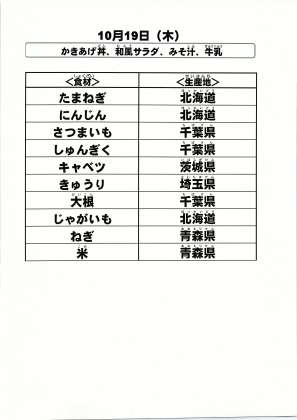 10月19日（木）
かきあげ丼、和風サラダ、みそ汁、牛乳
＜食材＞ ＜生産地＞
たまねぎ 北海道
にんじん 北海道
さつまいも 千葉県
しゅんぎく 千葉県
キャベツ 茨城県
きゅうり 埼玉県
大根 千葉県
じゃがいも 北海道
ねぎ 青森県
米 青森県